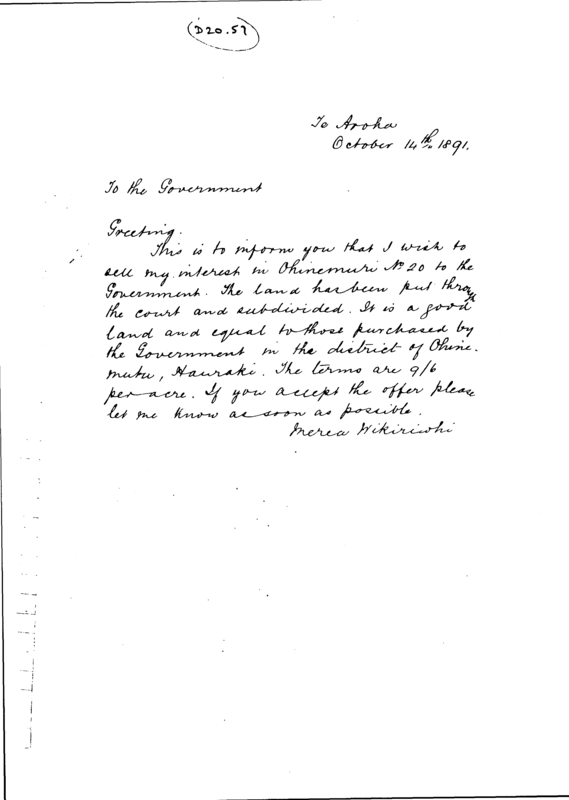 D20.57
Te Aroha
October 14th 1891.
To the Government
Greeting.
This is to inform you that I wish to
sell my interest in Ohinemuri No 20 to the
Government. The land has been put through
the court and subdivided. It is a good
land and equal to those purchased by
the Government in the district of Ohine-
mutu, Hauraki. The terms are 9/6
per acre. If you accept the offer please
let me know as soon as possible.
Merea Wikiriwhi